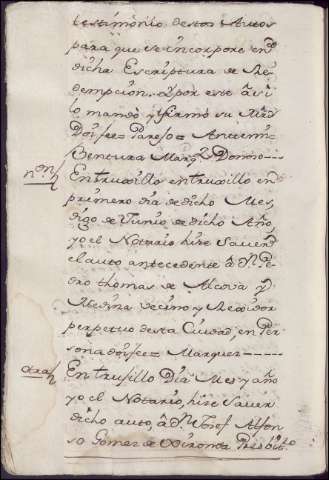 testimonio destos Autos
para que se incorpore en d
dicha Escriptura de Re
dempcion. Y por este asi
lo mando y firmo su Mrd
Doi fee= Parejo= Ante mi=
Bentura Marqz Donoso---
non/ En truxillo en truxillo en
primero dia de dicho Mes,
digo de Junio de dicho Año,
yo el Notario hize saver
el auto antecedente â Dn Pe
dro thomas de Alcova y
Medina Vecino y Rexidor
perpetuo desta Ciudad, en Per
sona doi fee= Marquez-----
otra/ En trusillo Dia Mes y año
yo el Notario, hize saver
dicho auto, â Dn Josef Alfon
so Gomez de Presbito